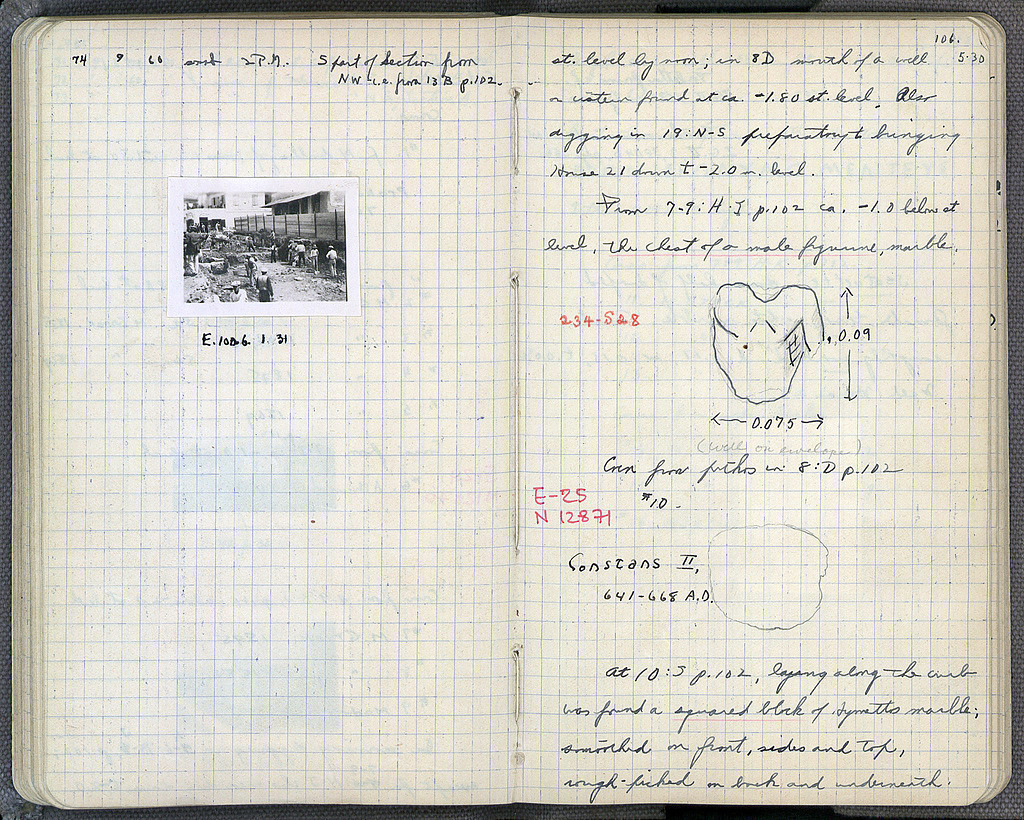 74 9 60 2 P.M. S part of Section from
NW - i.e. from 13 B p. 102.
E. 100.6. 1. 31
106.
st. level by noon; in 8D mouth of a well 5·30
or cistern found at ca. -1.80 st. level. Also
digging in 19: N-S preparatory to bringing
House 21 down to -2.0 m. level.
From 7-9: H-I p. 102 ca. -1.0 below st
level, the chest of a male figurine, marble.
234-S28
0.09
0.075
(well on envelope)
Coin from pithos in 8:D p. 102
E-25
#10.
N 12871
Constans II,
641-668 A.D.
At 10:S p. 102, lying along the curb
was found a squared block of Hymettos marble;
smoothed on front, sides and top,
rough-picked on back and underneath.